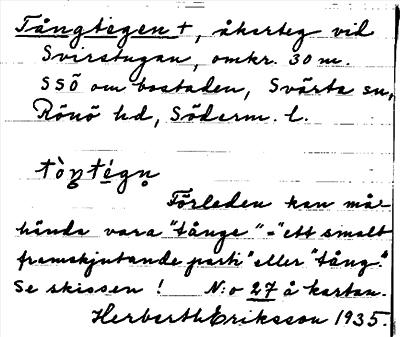 Tångtegen +, åkerteg vid
Svirstugan, omkr. 30 m.
SSÖ om bostaden, Svärta sn,
Rönö hd, Söderm. l.
tòŋtégn̥
Förleden kan må-
hända vara "tånge" = "ett smalt
framskjutande parti" eller "tång."
Se skissen! N:o 27 å kartan.
Herbert Eriksson 1935.